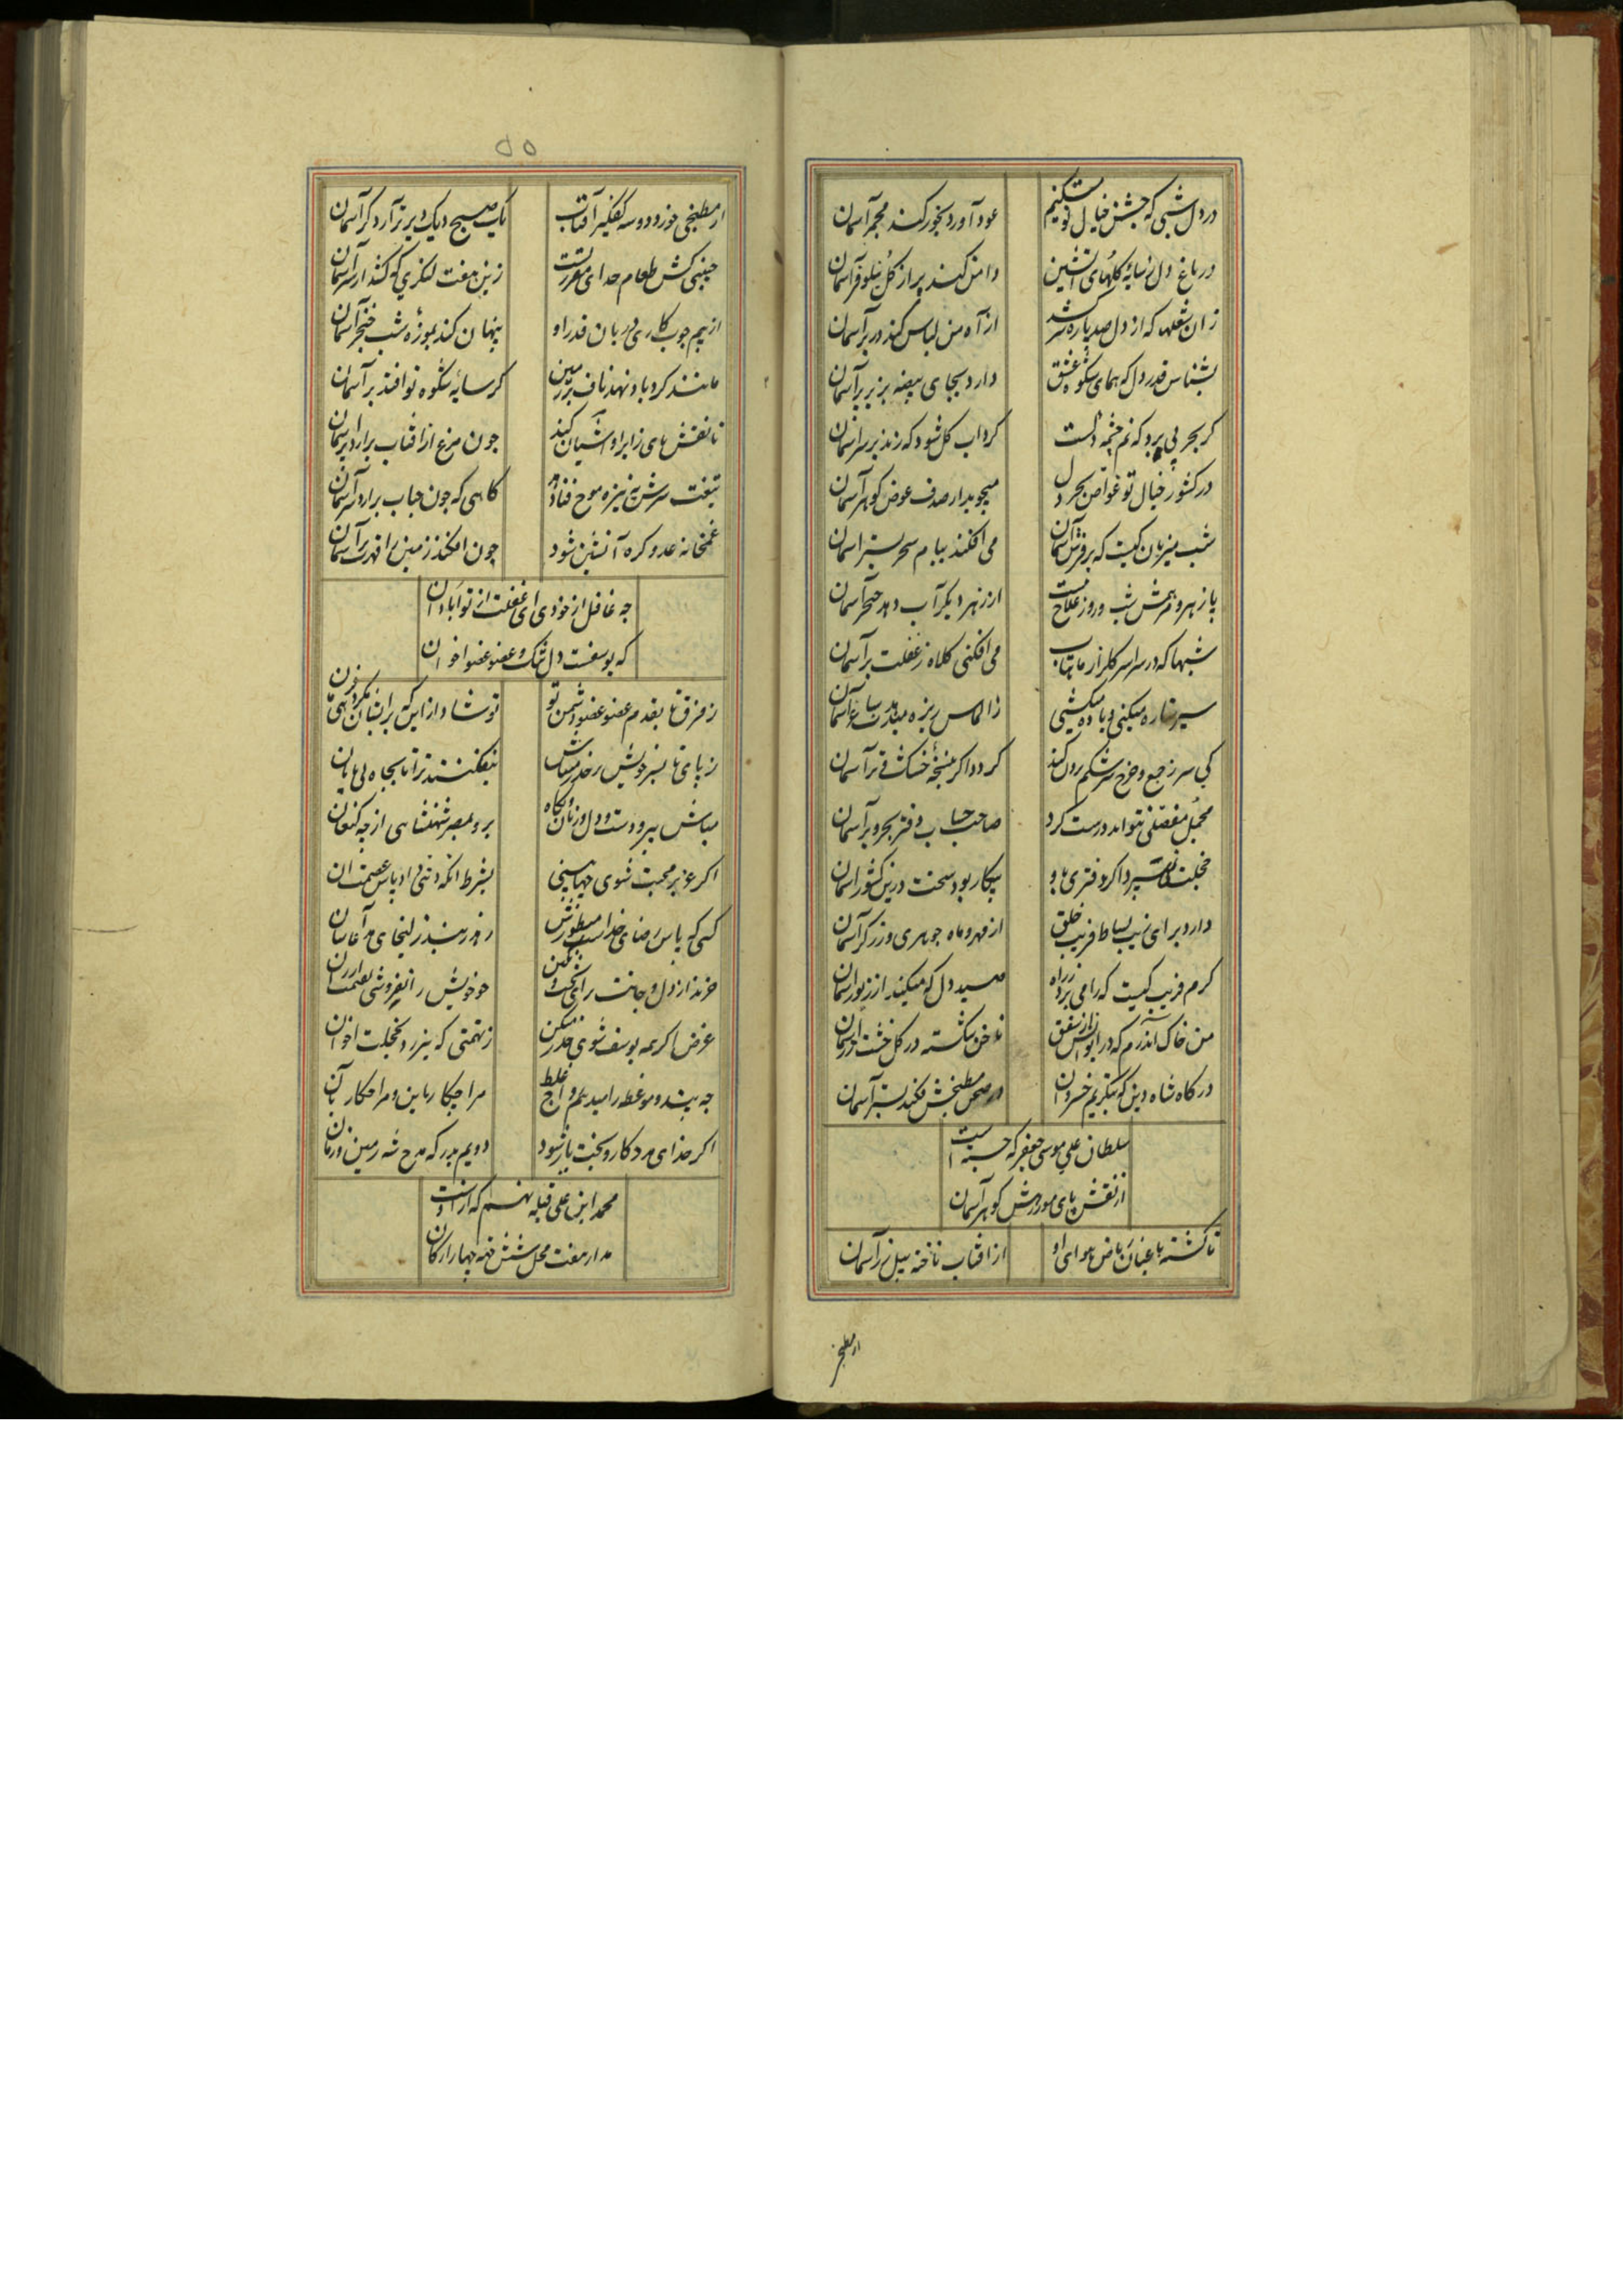 در دل شبی که جشن خیال تو میکنیم
عود آورد بخور کند مجمر آسمان
در باغ دل ز سایهٔ گلهای آتشین
دامن کند پر از گل نیلوفر آسمان
زان شعلها که از دل صد پاره سر کشد
از آه من لباس کند در بر آسمان
بشناس قدر دل که همای شکوه عشق
دارد بجای بیضه بزیر پر آسمان
گر بحر پی برد که نم چشمه دلست
گرداب گل شود که زند بر سر آسمان
در کشور خیال تو غواص بحر دل
میجوید از صدف عوض گوهر آسمان
شب میزبان کیست که بر فرش آسمان
می افکند ببام سحر بستر آسمان
با زهر و شب و روز علاج نیست
از زهر دیگر آب دهد خنجر آسمان
شبها که در سراسر گلزار ماهتاب
می افکنی کلاه ز غفلت بر آسمان
سیر ستاره میکنی و باده میکشی
ز الماس ریزه میدهدت ساغر آسمان
کی سر ز جمع و خرج سرشکم برون کند
گردد اگر خشک و تر آسمان
مجمل مفصلی نتواند درست کرد
صاحب حساب دفتر بحر و بر آسمان
خجلت
بیکار بود سخت درین کشور آسمان
دارد برای زیب بساط فریب خلق
از مهر و ماه جوهری و زرگر آسمان
گرم فریب کیست که را می برد ز راه
صید دل که میکند از زیور آسمان
من خاک آن درم که در ایوانش از شفق
ناخن شکسته در گل خشت در آسمان
درگاه شاه دین که بتکریم خسروان
در صحن مطبخش فکند بستر آسمان
سلطان علی موسی جعفر که جسته است
از نقش پای مور درش گوهر آسمان
تا گشته باغبان ریاض هوای او
از آفتاب ساخته بیل زر آسمان
از مطبخی
۵۵
از مطبخی خورد دو سه کفگیر آفتاب
یک صبح دیک دیرتر آرد گر آسمان
طعام
زین هفت لنگری که کشد از سر آسمان
از بیم چوب کاری دربان قدر او
پنهان کند بموزه شب خنجر آسمان
مانند گردباد نهد ناف بر زمین
گر سایهٔ شکوه تو افتد بر آسمان
تا نقش های زایر او آشیان کند
چون مرغ از آفتاب برآرد پر آسمان
تیغت سرش به نیزه موج فنا دهد
گاهی که چون حباب برآرد سر آسمان
غمخانه عدو کره آتشین شود
چون افکند زمین را قهرت بر آسمان
چه غافل از خودی ای غفلت از تو آبادان
که یوسفست دل تنگ و عضو عضو اخوان
ز فرق تا بقدم عضو عضو دشمن تو
تو شاد ازین که برایشان
ز پای تا بسر خویش بر حذر میباش
نیفکنند ترا تا بچاه بی پایان
مباش پیرو دست و دل و زبان و نگاه
برو بمصر شهنشاهی از چه کنعان
اگر عزیز محبت شوی جها بینی
بشرط آنکه پاس عصمت آن
کسی که پاس رضای خدا بود منظورش
خرند از دل و جانت
تو خویش را نفروشی
غرض اگر همه یوسف شوی حذر میکن
ز تهمتی که نیرزد بخجلت اخوان
چه پند و موعظه را میدهم رواج غلط
مرا چکار باین و مرا چکار بآن
اگر خدای مددکار و بخت یار شود
دویم بدرگه مدح شه زمین و زمان
محمد ابن علی قبله نهم که ازوست
مدار هفت محل شش جهة چهار ارکان